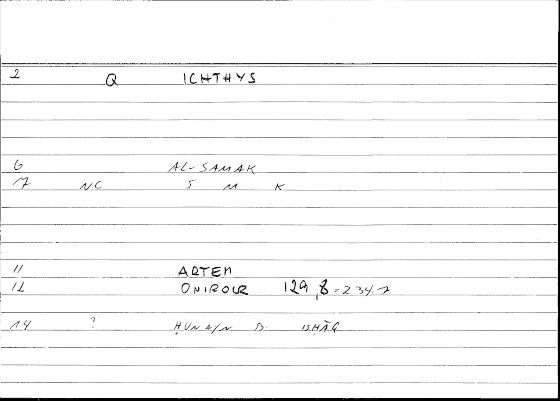 2 Q ICHTHYS
6 AL-SAMAK
7 NC S M K
11 ARTEM
12 ONIROCR 129,8=234.7
14 ? ḤUNAIN B. ISḤĀQ